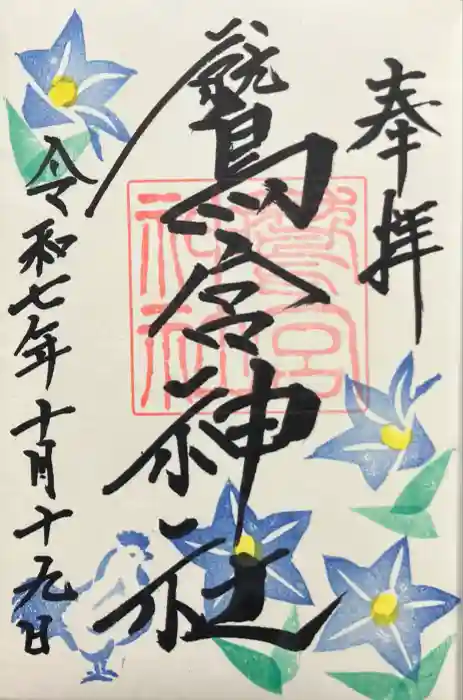 奉拝
鷲宮神社
令和七年十月十九日
鷲宮
神社